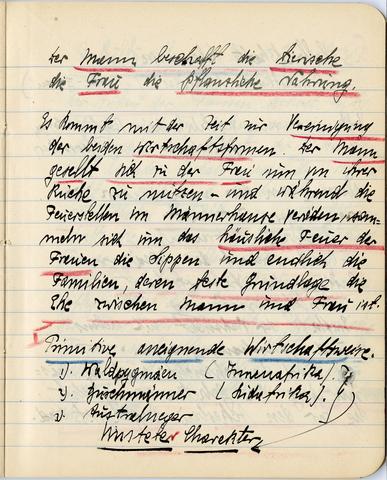 der Mann beschafft die tierische
die Frau die pflanzliche Nahrung.
Es kommt mit der Zeit zur Vereinigung
der beiden Wirtschaftsformen. Der Mann
gesellt sich zu der Frau um von ihrer
Küche zu nutzen - und während die
Feuerstellen im Männerhause veröden sam-
meln sich um das häusliche Feuer der
Frauen die Sippen und endlich die
Familien, deren feste Grundlage die
Ehe zwischen Mann und Frau ist.
Primitive aneignende Wirtschaftsweise.
1) Waldpygmäen (Innerafrika)
2) Buschmänner (Südafrika)
3) Australneger
Charakter